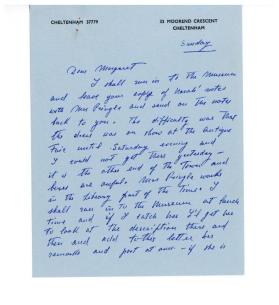 CHELTENHAM 57779
33 MOOREND CRESCENT
CHELTENHAM
Sunday
Dear Margaret
I shall run in to the Museum
and leave your copy of Marsh' notes
with Mrs Pringle and send on the notes
back to you. The difficulty was that
the dress was on show at the Antique
Fair until Saturday evening and
I could not get there yesterday -
it is the other end of the Town and
buses are awful. Mrs Pringle works
in the library part of the time. I
shall run in to the Museum at lunch
time and if I catch her I'd get her
to look at the description there and
then and add to this letter her
remarks and post at once - if she is